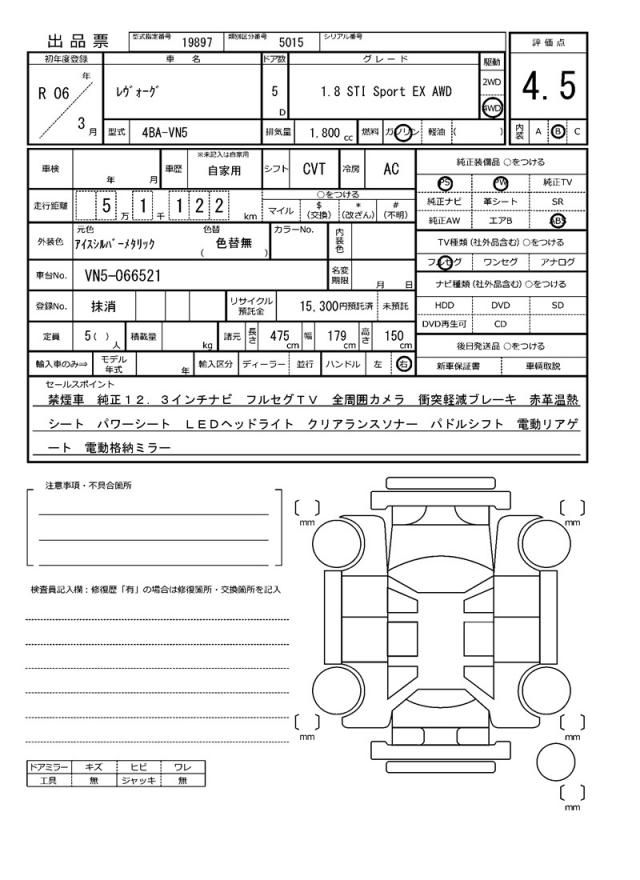 出品票 型式指定番号 19897 類別区分番号 5015 シリアル番号
評価点
4.5
内装 A B C
初年度登録 車名 ドア数 グレード 駆動
R 06 年 3 月 レヴォーグ 5 D 1.8 STI Sport EX AWD 2WD 4WD
型式 4BA-VN5 排気量 1.800 cc 燃料 ガソリン 軽油 ( )
車検 年 月 車歴 ※未記入は自家用 自家用 シフト CVT 冷房 AC
走行距離 5 万 1 千 1 2 2 km ○をつける マイル $ (交換) * (改ざん) # (不明)
外装色 元色 アイスシルバーメタリック 色替 ( 色替無 ) カラーNo. 内装色
車台No. VN5-066521 名変期限 月 日
登録No. 抹消 リサイクル預託金 15,300円預託済 未預託
定員 5( ) 人 積載量 kg 諸元 長さ 475 cm 幅 179 cm 高さ 150 cm
輸入車のみ⇒ モデル年式 年 輸入区分 ディーラー 並行 ハンドル 左 右
純正装備品 ○をつける
PS PW 純正TV
純正ナビ 革シート SR
純正AW エアB ABS
TV種類 (社外品含む) ○をつける
フルセグ ワンセグ アナログ
ナビ種類 (社外品含む) ○をつける
HDD DVD SD
DVD再生可 CD
後日発送品 ○をつける
新車保証書 車輌取説
セールスポイント
禁煙車 純正12．3インチナビ フルセグTV 全周囲カメラ 衝突軽減ブレーキ 赤革温熱
シート パワーシート LEDヘッドライト クリアランスソナー パドルシフト 電動リアゲ
ート 電動格納ミラー
注意事項・不具合箇所
検査員記入欄：修復歴「有」の場合は修復箇所・交換箇所を記入
ドアミラー キズ ヒビ ワレ
工具 無 ジャッキ 無
mm
mm
mm
mm
mm